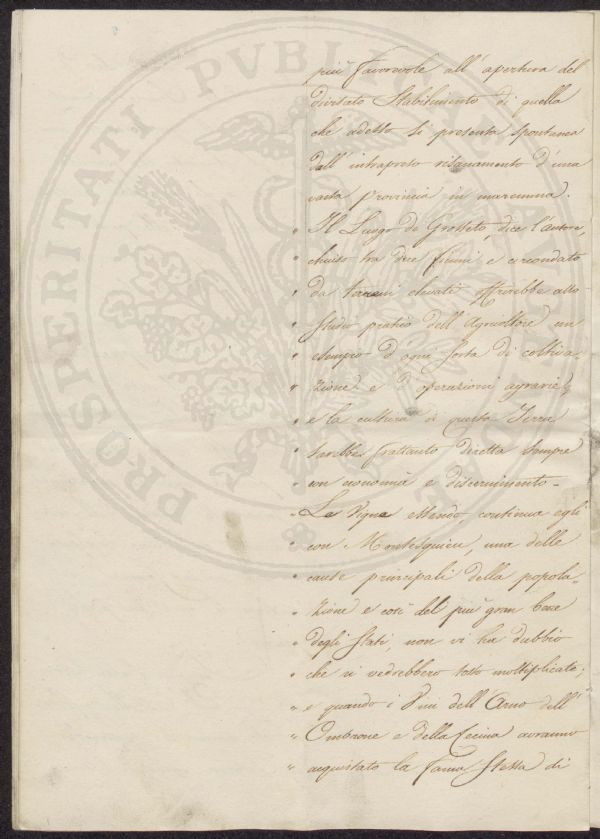 più favorevole all'apertura del
divisato Stabilimento di quella
che adesso si presenta spontanea
dall'intrapreso risanamento d'una
vasta provincia in maremma.
" Il Luogo di Grosseto, dice l'autore,
" chiuso tra due fiumi e circondato
" da terreni elevati offrirebbe allo
" studio pratico dell'Agricoltore un
" esempio d'ogni sorta di coltiva„
" zione e d'operazioni agrarie,
" e la cultura di questa Terra
" sarebbe frattanto diretta sempre
" con economia e discernimento_
" Le Vigne essendo, continua egli
" con Montesquieu, una delle
" cause principali della popola„
" zione e così del più gran bene
" degli Stati, non vi ha dubbio
" che si vedrebbero tosto moltiplicate;
" e quando i Vini dell'Arno dell'
" Ombrone e della Cecina avranno
" acquistato la fama stessa di
PROSPERITATI PVBLICAE